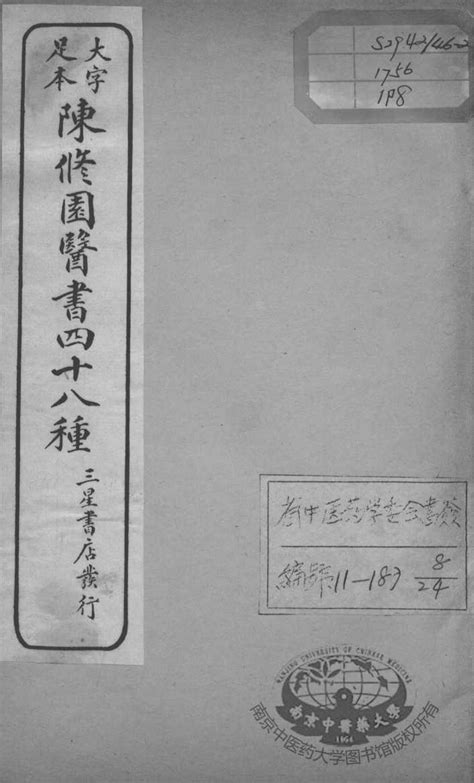 大字
足本
陳修園醫書四十八種
三星書店發行
S2942/46-2
1756
1P8
編號11-183 8/24
NANJING UNIVERSITY OF CHINESE MEDICINE
南京中醫藥大學
1954
南京中医药大学图书馆版权所有